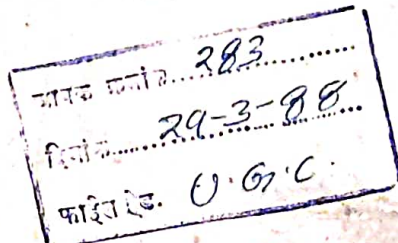 जावक क्रमांक......283...........
दिनांक......29-3-88
फाईल हेड. U.G.C.